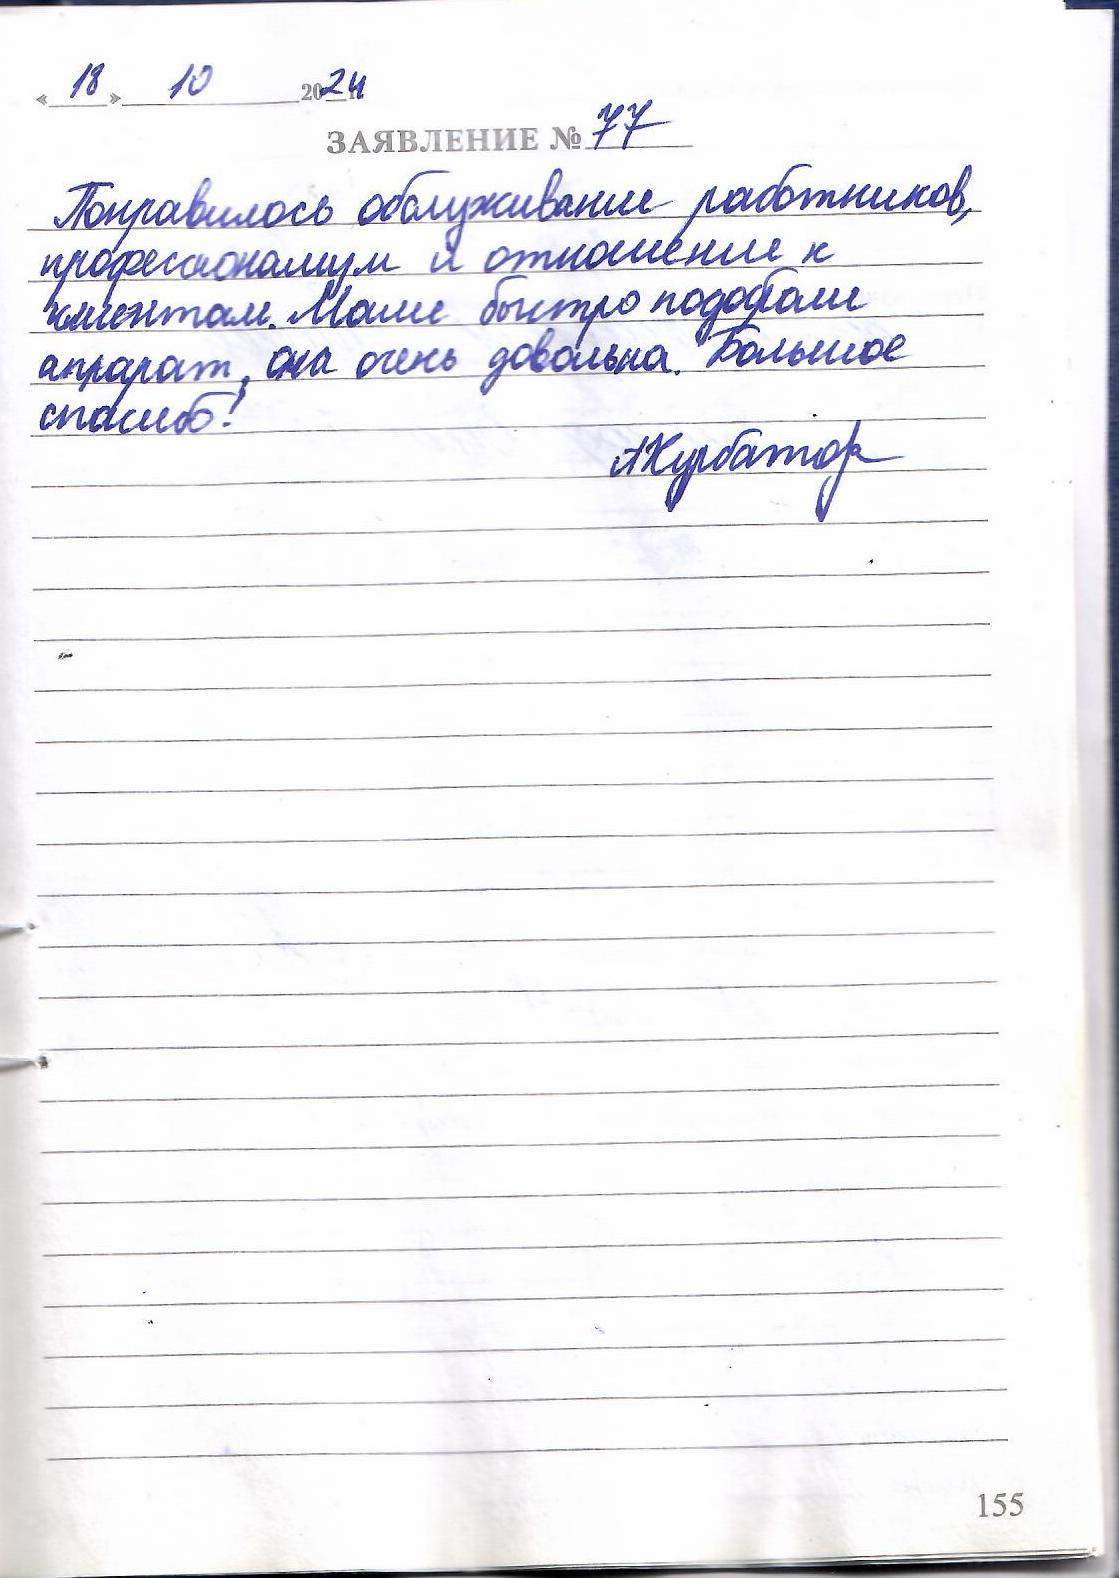 «18» 10 2024
ЗАЯВЛЕНИЕ № 77
Понравилось обслуживание работников,
профессионализм и отношение к
клиентам. Маме быстро подобрали
аппарат, она очень довольна. Большое
спасибо!
АКурбатова
155